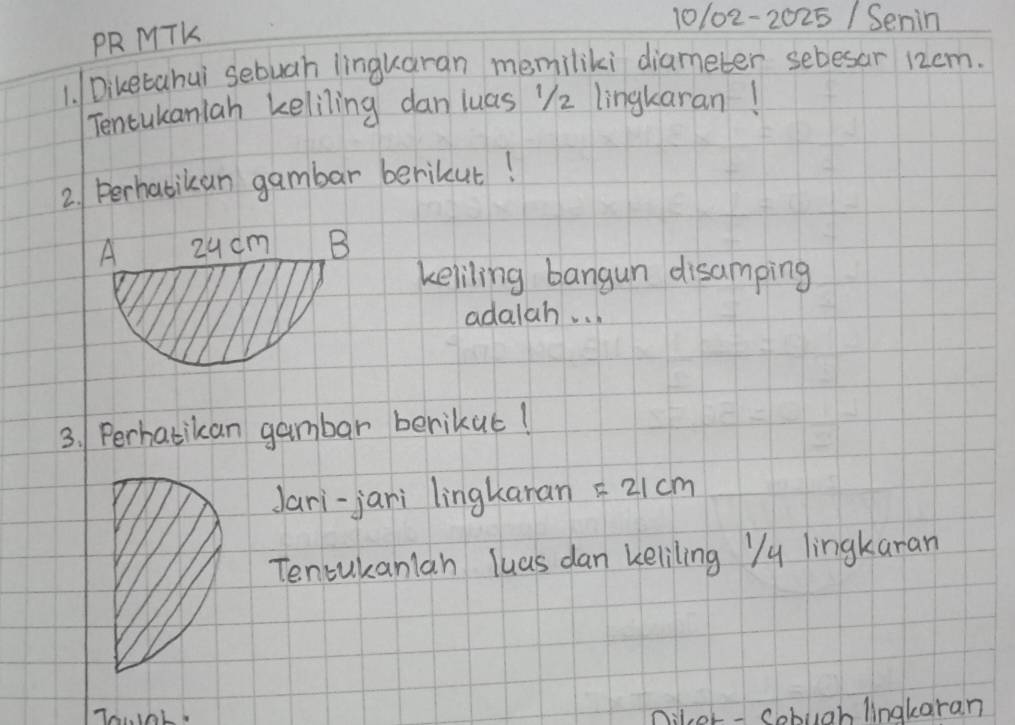 PR MTK
10/02-2025 / Senin
1. Diketahui sebuah lingkaran memiliki diameter sebesar 12cm.
Tentukanlah keliling dan luas 1/2 lingkaran !
2. Perhatikan gambar berikut !
A 24 cm B
keliling bangun disamping
adalah...
3. Perhatikan gambar berikut !
Jari-jari lingkaran = 21 cm
Tentukanlah luas dan keliling 1/4 lingkaran
Jawab :
Diket - Sebuah lingkaran